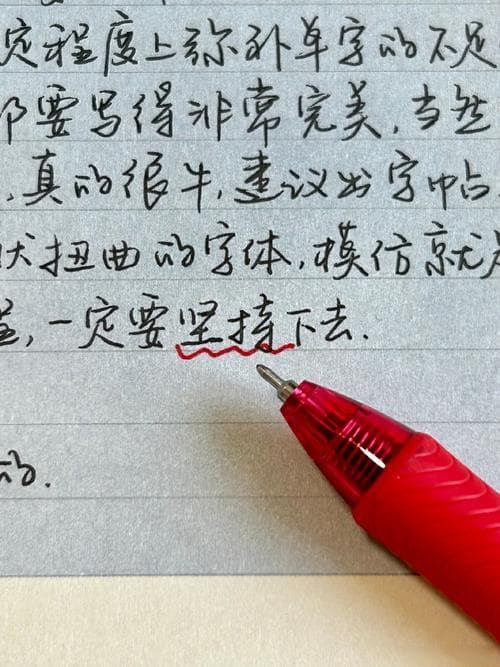 定程度上弥补单字的不足
要写得非常完美,当然
,真的很牛,建议出字帖
扭曲的字体,模仿就
,一定要坚持下去.
的.